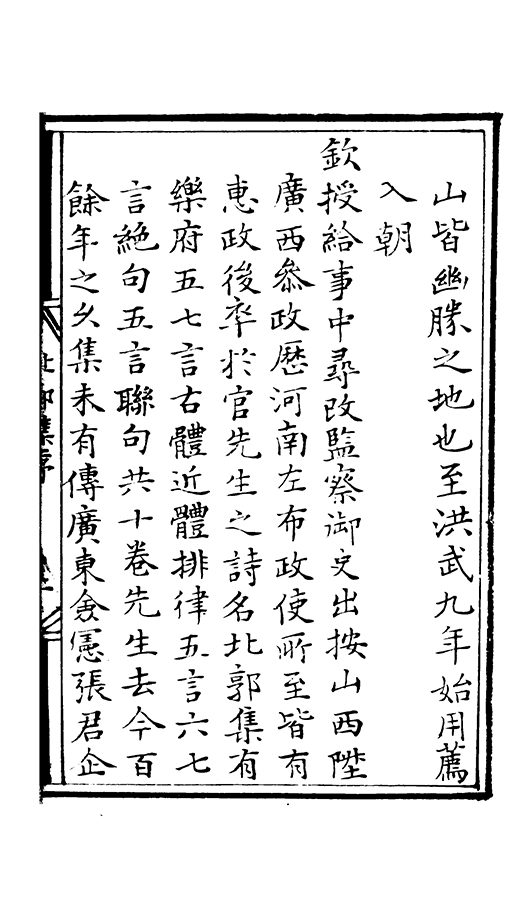 山皆幽勝之地也至洪武九年始用薦
入朝
欽授給事中尋改監察御史出按山西陞
廣西叅政歷河南左布政使所至皆有
惠政後卒於官先生之詩名北郭集有
樂府五七言古體近體排律五言六七
言絶句五言聯句共十卷先生去今百
餘年之久集未有傳廣東僉憲張君企
北郭集序